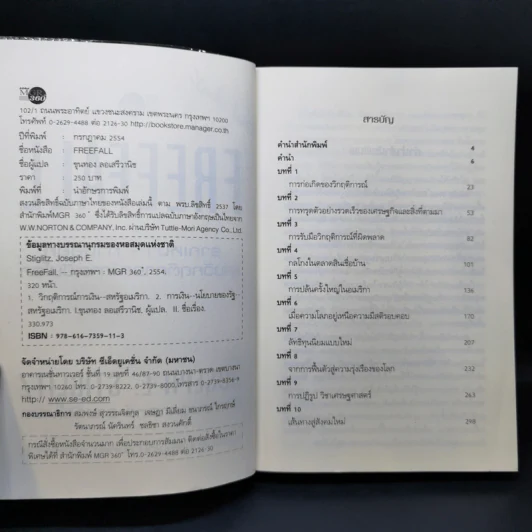 360
102/1 ถนนพระอาทิตย์ แขวงชนะสงคราม เขตพระนคร กรุงเทพฯ 10200
โทรศัพท์ 0-2629-4488 ต่อ 2126-30 http://bookstore.manager.co.th
ปีที่พิมพ์ : กรกฎาคม 2554
ชื่อหนังสือ : FREEFALL
ชื่อผู้แปล : ขุนทอง ลอเสรีวานิช
ราคา : 250 บาท
พิมพ์ที่ : นำอักษรการพิมพ์
สงวนลิขสิทธิ์ฉบับภาษาไทยของหนังสือเล่มนี้ ตาม พรบ.ลิขสิทธิ์ 2537 โดย
สำนักพิมพ์MGR 360° ซึ่งได้รับลิขสิทธิ์การแปลฉบับภาษาอังกฤษเป็นไทยจาก
W.W.NORTON & COMPANY, Inc. ผ่านบริษัท Tuttle-Mori Agency Co., Ltd.
ข้อมูลทางบรรณานุกรมของหอสมุดแห่งชาติ
Stiglitz, Joseph E.
FreeFall.-- กรุงเทพฯ : MGR 360°, 2554.
320 หน้า.
1. วิกฤติการณ์การเงิน--สหรัฐอเมริกา. 2. การเงิน--นโยบายของรัฐ--
สหรัฐอเมริกา. I.ขุนทอง ลอเสรีวานิช, ผู้แปล. II. ชื่อเรื่อง.
330.973
ISBN : 978-616-7359-11-3
จัดจำหน่ายโดย บริษัท ซีเอ็ดยูเคชั่น จำกัด (มหาชน)
อาคารเนชั่นทาวเวอร์ ชั้นที่ 19 เลขที่ 46/87-90 ถนนบางนา-ตราด เขตบางนา
กรุงเทพฯ 10260 โทร.0-2739-8222, 0-2739-8000
http:// www.se-ed.com
กองบรรณาธิการ
กรณีสั่งซื้อหนังสือจำนวนมาก เพื่อประกอบการสัมมนา ติดต่อสั่งซื้อในราคา
พิเศษได้ที่ สำนักพิมพ์ MGR 360° โทร.0-2629-4488 ต่อ 2126-30
สารบัญ
คำนำสำนักพิมพ์ 4
คำนำ 6
บทที่ 1
การก่อเกิดของวิกฤติการณ์ 23
บทที่ 2
การทรุดตัวอย่างรวดเร็วของเศรษฐกิจและสิ่งที่ตามมา 53
บทที่ 3
การรับมือวิกฤติการณ์ที่ผิดพลาด 82
บทที่ 4
กลโกงในตลาดสินเชื่อบ้าน 101
บทที่ 5
การปล้นครั้งใหญ่ในอเมริกา 136
บทที่ 6
เมื่อความโลภอยู่เหนือความมีสติรอบคอบ 171
บทที่ 7
ลัทธิทุนนิยมแบบใหม่ 207
บทที่ 8
จากการฟื้นตัวสู่ความรุ่งเรืองของโลก 232
บทที่ 9
การปฏิรูป วิชาเศรษฐศาสตร์ 263
บทที่ 10
เส้นทางสู่สังคมใหม่ 298